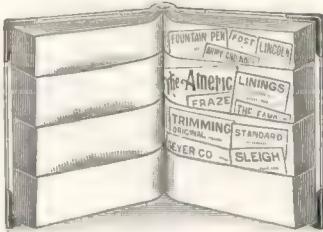 FOUNTAIN PEN
POST
LINCOLN
The Americ
LININGS
FRAZE
THE
TRIMMING
ORIGINAL
STANDARD
GEYER CO
SLEIGH